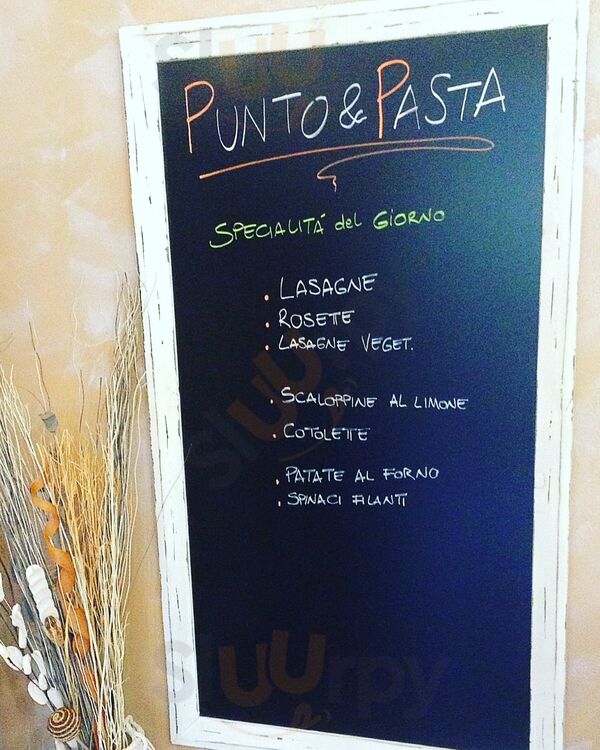 PUNTO & PASTA
SPECIALITÁ del GIORNO
. LASAGNE
. ROSETTE
. LASAGNE VEGET.
. SCALOPPINE AL LIMONE
. COTOLETTE
. PATATE AL FORNO
. SPINACI FILANTI
sluurpy
sluurpy
sluurpy